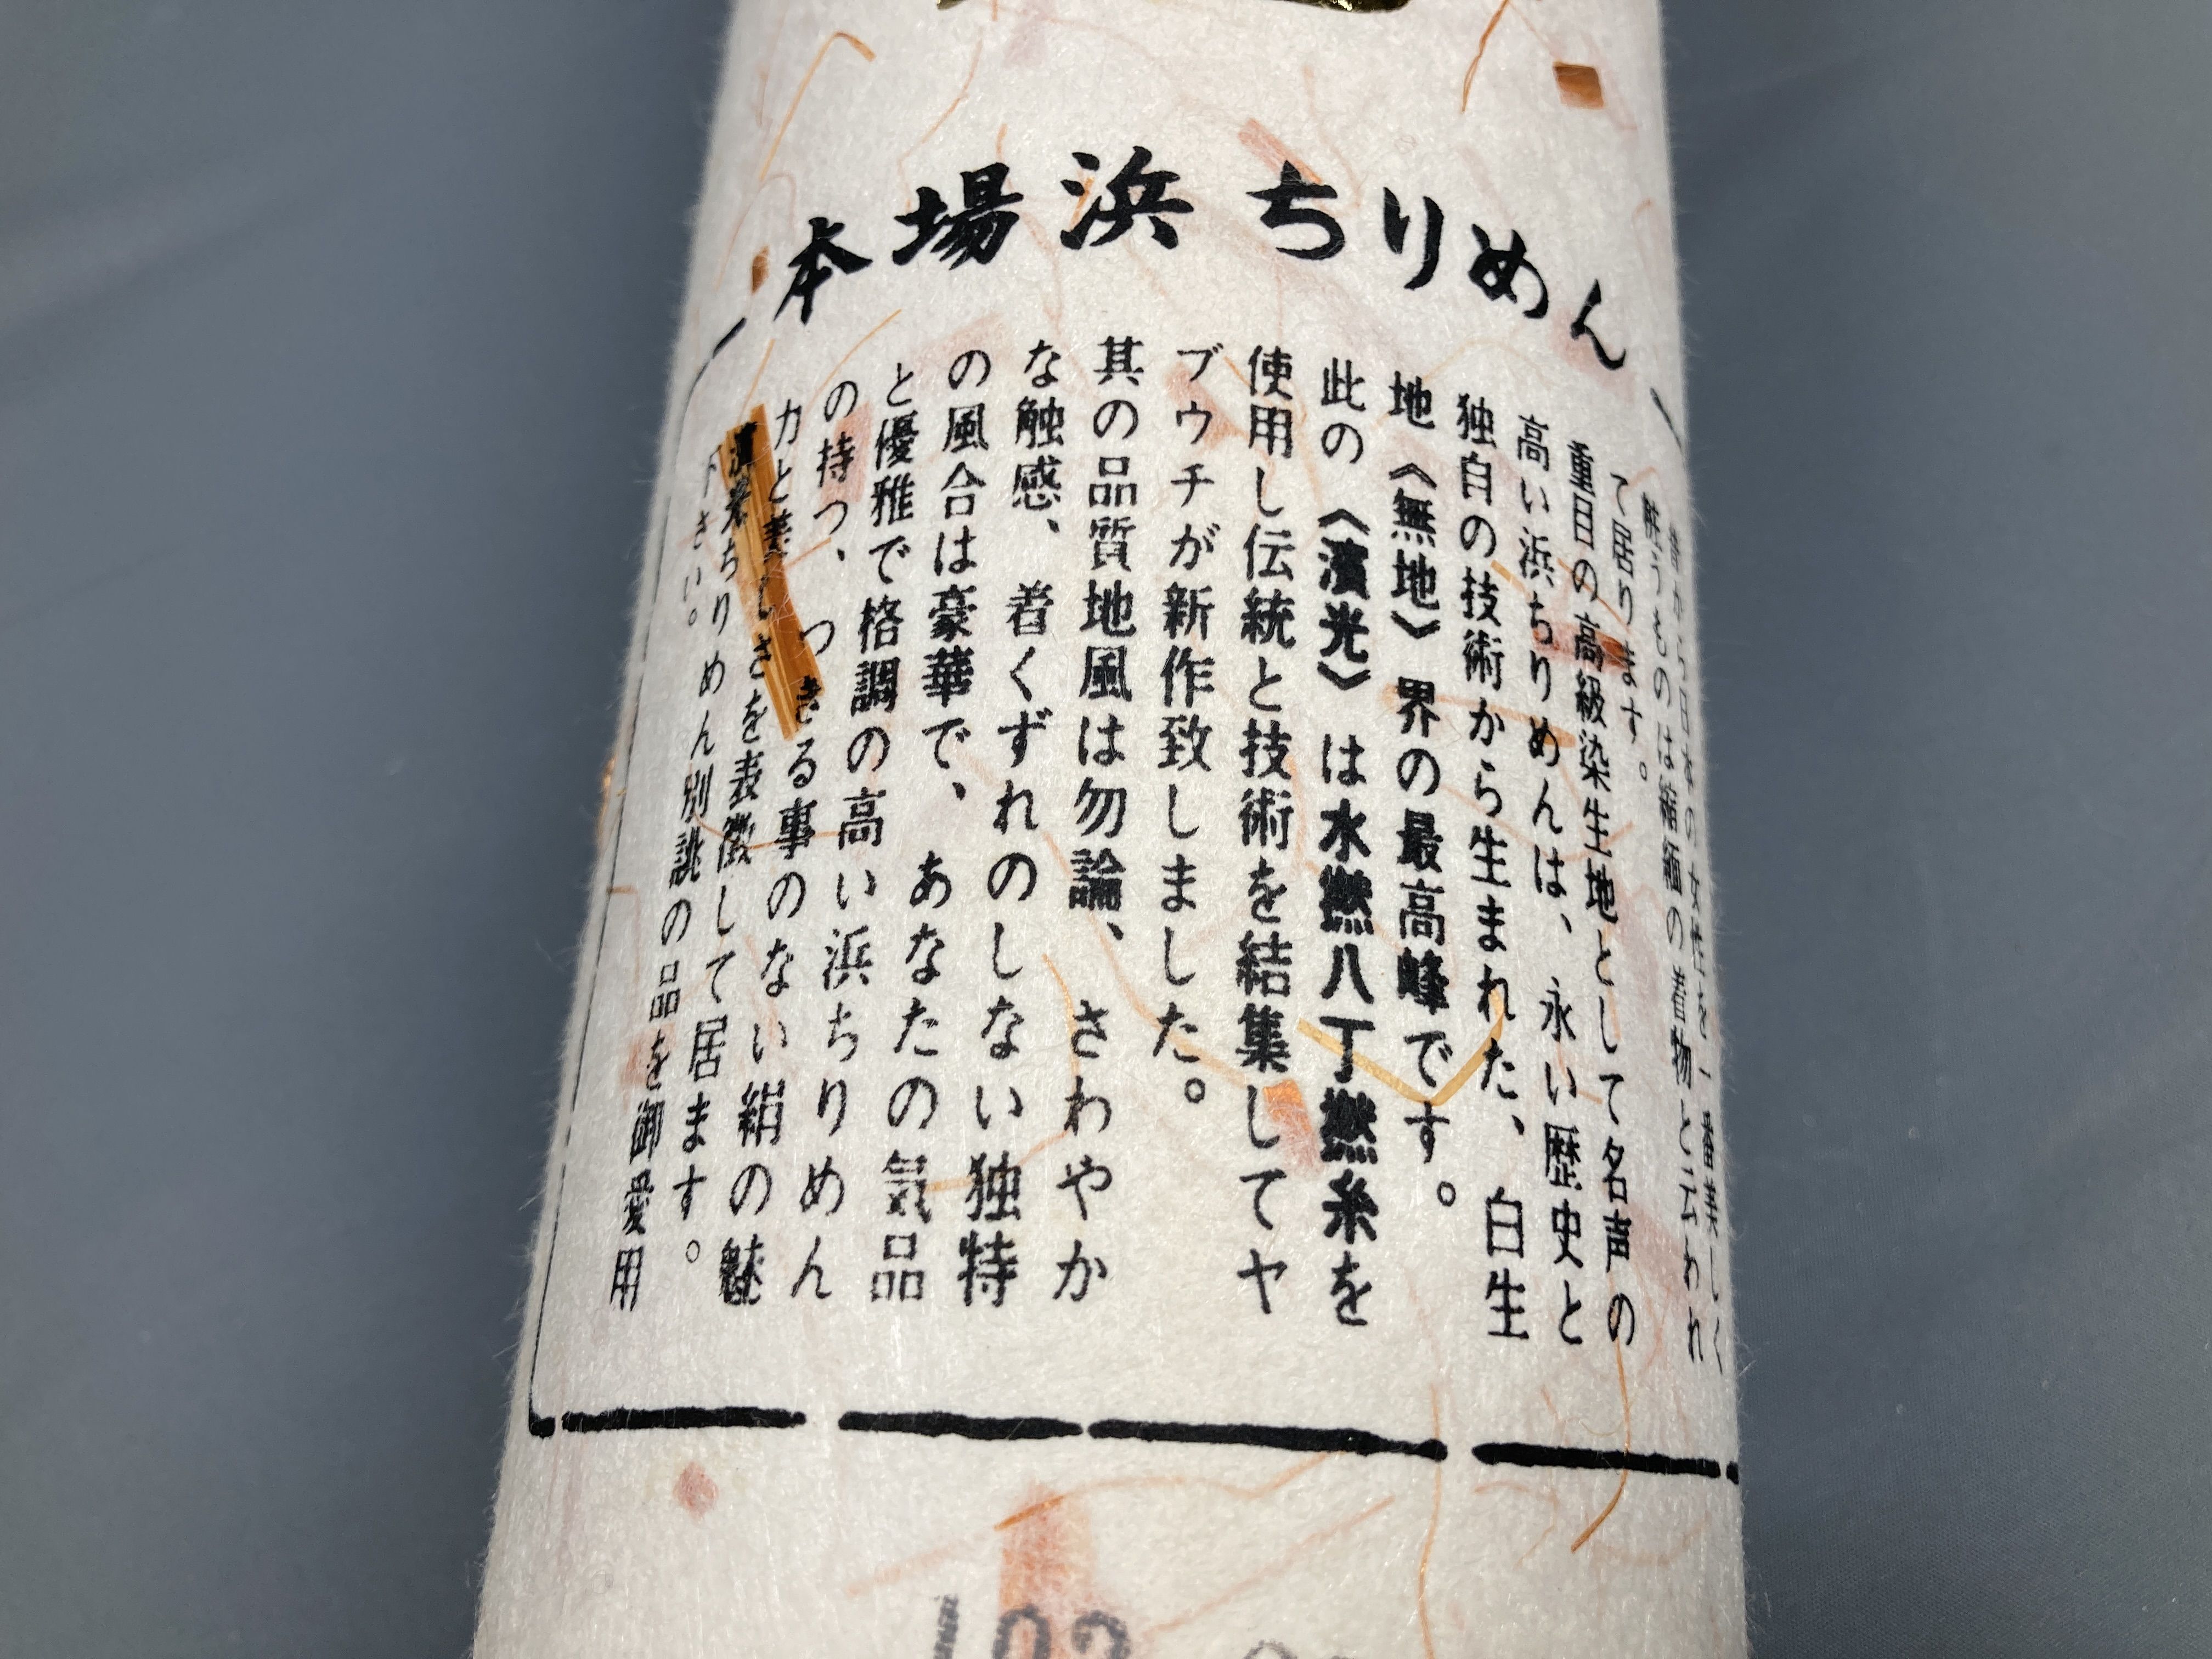 本場浜ちりめん
昔から日本の女性を一番美しく
粧うものは縮緬の着物と云われ
て居ります。
重目の高級染生地として名声の
高い浜ちりめんは、永い歴史と
独自の技術から生まれた、白生
地《無地》界の最高峰です。
此の《濱光》は水撚八丁撚糸を
使用し伝統と技術を結集してヤ
ブウチが新作致しました。
其の品質地風は勿論、さわやか
な触感、着くずれのしない独特
の風合は豪華で、あなたの気品
と優雅で格調の高い浜ちりめん
の持つ、つきる事のない絹の魅
力と美しさを表徴して居ます。
濱光ちりめん別誂の品を御愛用
下さい。